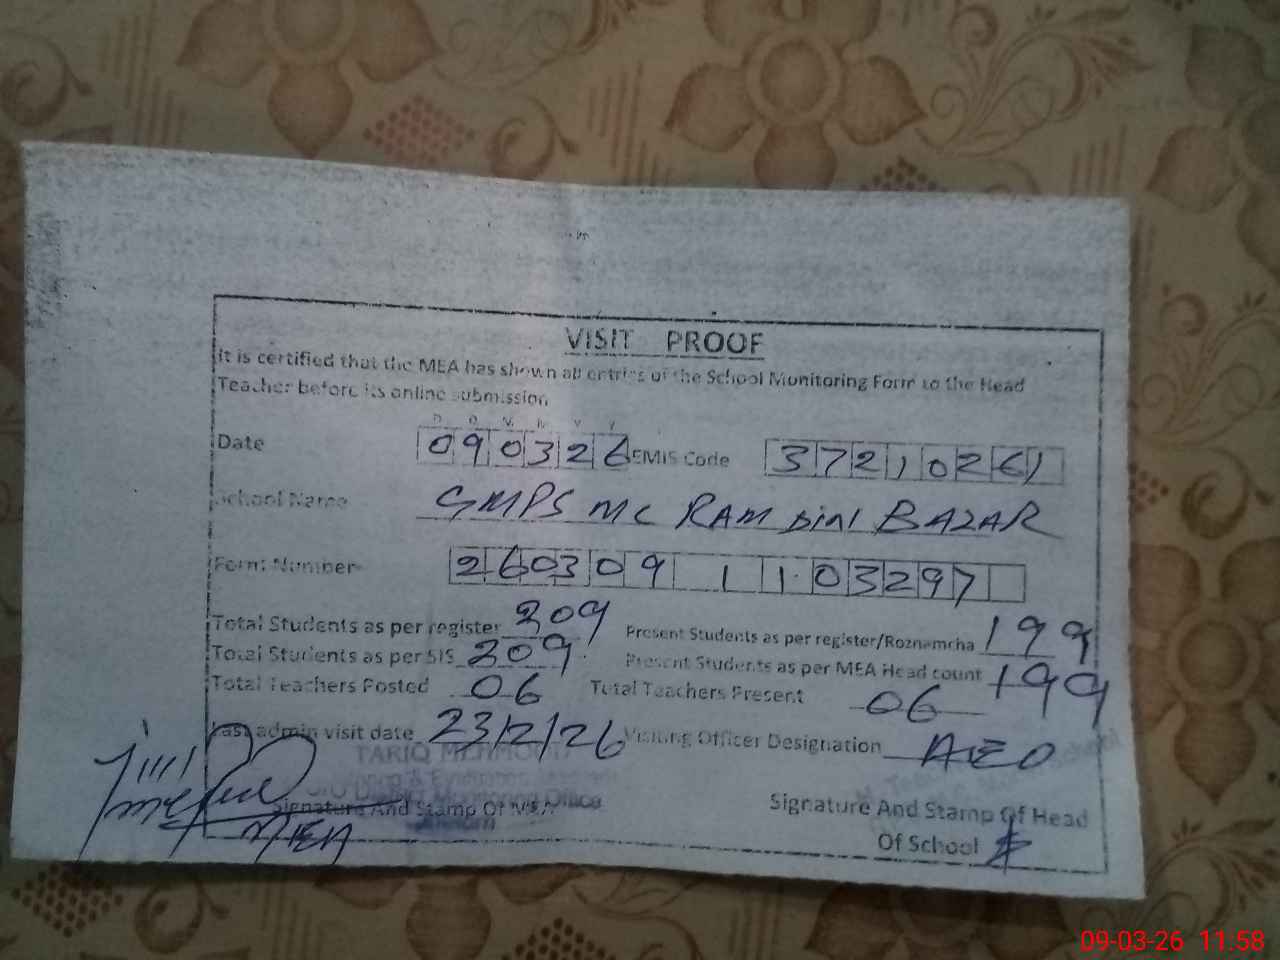 VISIT PROOF
It is certified that the MEA has shown all entries of the School Monitoring Form to the Head
Teacher before its online submission
D D M M Y Y
Date 090326 EMIS Code 37210261
School Name GMPS MC RAM DINI BAZAR
Form Number 260309 1 1 03297
Total Students as per register 209 Present Students as per register/Roznamcha 199
Total Students as per SIS 209 Present Students as per MEA Head count 199
Total Teachers Posted 06 Total Teachers Present 06
Last admin visit date 23/2/26 Visiting Officer Designation AEO
TARIQ MEHMOOD
District Monitoring Office
Signature And Stamp Of MEA Signature And Stamp Of Head
MEA Of School
09-03-26 11:58